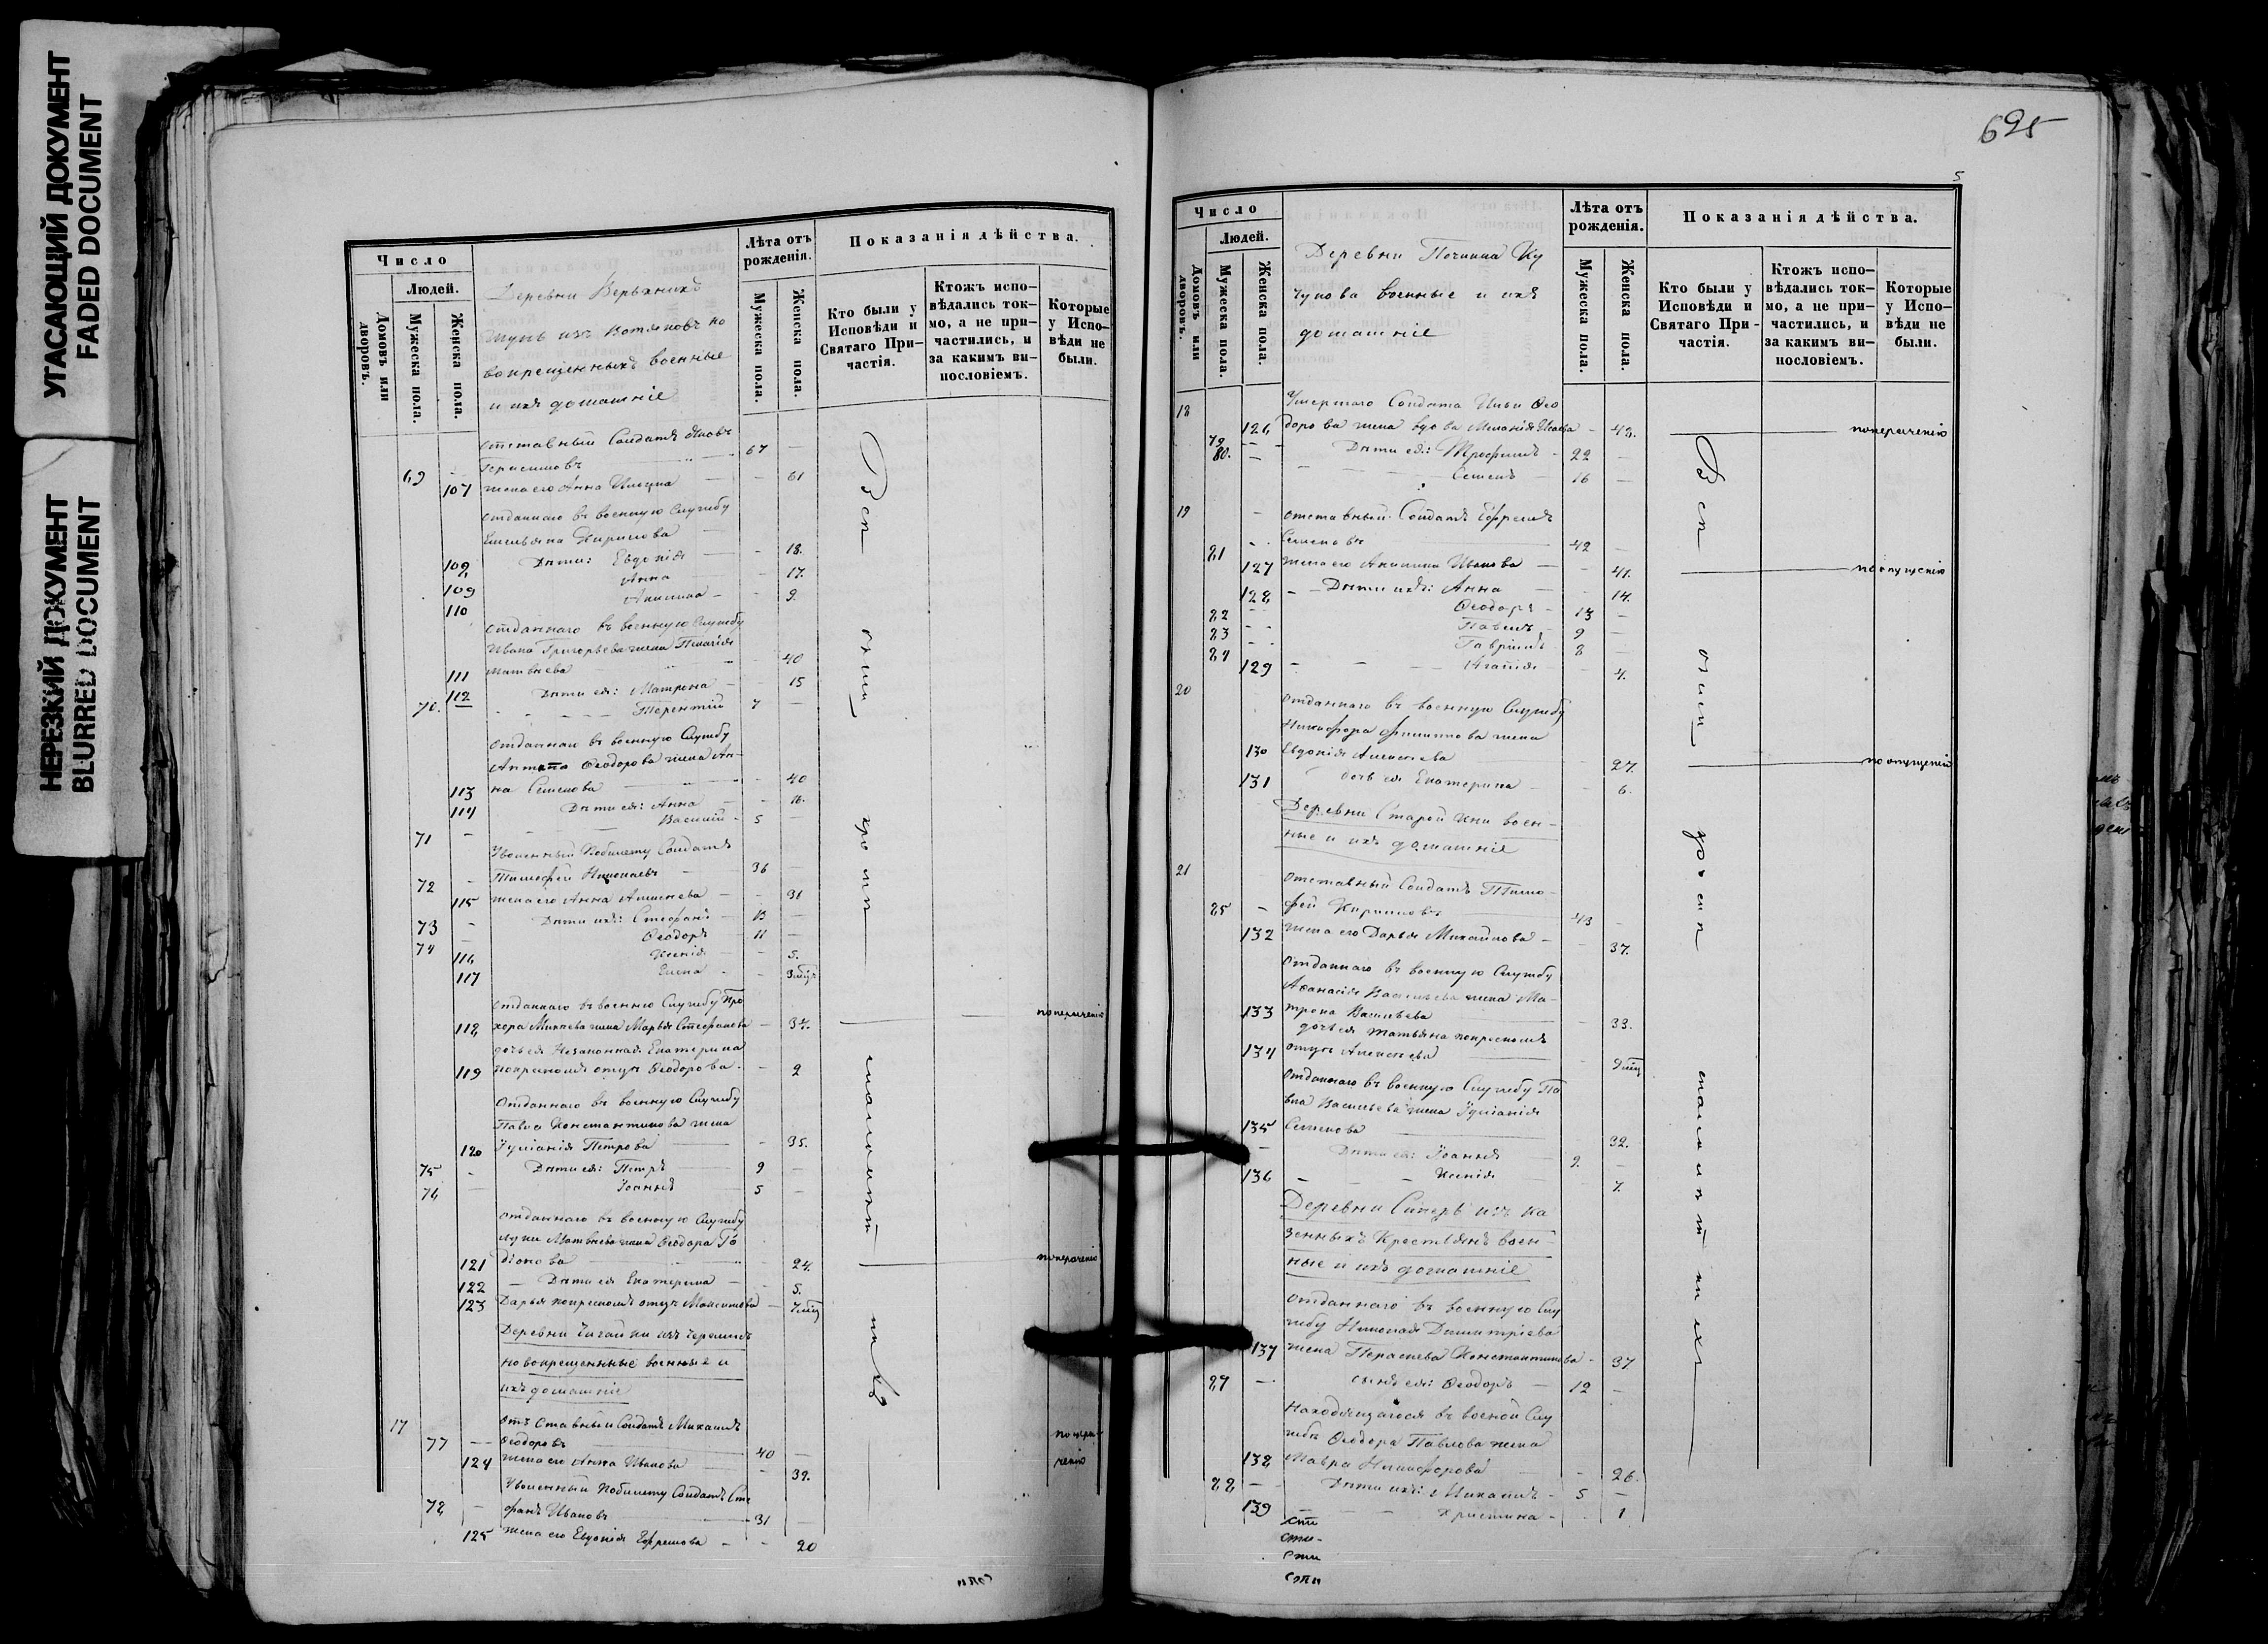 УГАСАЮЩИЙ ДОКУМЕНТ
FADED DOCUMENT
НЕРЕЗКИЙ ДОКУМЕНТ
BLURRED DOCUMENT
Число
Людей.
Домовъ или дворовъ.
Мужеска пола.
Женска пола.
Деревни Верьхнихъ
изъ Вотяковъ но
вокрещенныхъ военные
и ихъ домашніе
Лѣта отъ рожденія.
Мужеска пола.
Женска пола.
Показанія дѣйства.
Кто были у Исповѣди и Святаго При-частія.
Ктожъ испо-вѣдались ток-мо, а не при-частились, и за какимъ ви-нословіемъ.
Которые у Испо-вѣди не были.
отставный Солдатъ Іаковъ
69 Герасимовъ 67
107 жена его Анна 61
отданнаго въ военную Службу
Емельяна Кирилова
108 Дѣти: Евдокія 18.
109 Анна 17.
110 Акилина 9.
отданнаго въ военную Службу
Ивана Григорьева жена Пелагія
111 Матвѣева 40
112 Дѣти ея: Матрона 15
70. Терентій 7
отданнаго въ военную Службу
Антипа Ѳеодорова жена Ан-
113 на Семенова 40
114 Дѣти ея: Анна 16.
71 Василій 5
Уволенный по билету Солдатъ
72 Тимофей Николаевъ 36
115 жена его Анна Алексеева 31
73 Дѣти ихъ: Стефанъ 13
74 Ѳеодоръ 11
116 Ксенія 5.
117 Елена 3 мѣс
отданнаго въ военную Службу Про
118 хора жена Марья Стефанова 34. по нераченію
дочь ея Незаконная Екатерина
119 по крестномъ отцѣ Ѳеодорова. 2
Отданнаго въ военную Службу
Павла Константинова жена
120 Іуліанія Петрова 35.
75 Дѣти ея: Петръ 9
76 Іоаннъ 5
отданнаго въ военную Службу
Луки Матвѣева жена Ѳеодора Ро
121 діонова 24. по нераченію
122 Дѣти ея Екатерина 5.
123 Дарья по крестномъ отцѣ Максимова 7 мѣс
Деревни изъ черемисъ
новокрещенные военные и
ихъ домашніе
17 отставный Солдатъ Михаилъ
77 Ѳеодоровъ 40 по нера-
124 жена его Анна Иванова 39. ченію
Уволенный по билету Солдатъ Сте
78 фанъ Ивановъ 31
125 жена его Евдокія Ефремова 20
Всѣ они кромѣ показанныхъ
695
5
Число
Людей.
Домовъ или дворовъ.
Мужеска пола.
Женска пола.
Деревни Починка Ку
чукова военные и ихъ
домашніе
Лѣта отъ рожденія.
Мужеска пола.
Женска пола.
Показанія дѣйства.
Кто были у Исповѣди и Святаго При-частія.
Ктожъ испо-вѣдались ток-мо, а не при-частились, и за какимъ ви-нословіемъ.
Которые у Испо-вѣди не были.
18 Умершаго Солдата Ильи Ѳео
126 дорова жена вдова Меланія Исаева 48. по нераченію
79 Дѣти ея: Трофимъ 22
80. Семенъ 16
19 отставный Солдатъ Ефремъ
81 Семеновъ 42
127 жена его Акилина Иванова 41. по опущенію
128 Дѣти ихъ: Анна 14.
82 Ѳеодоръ 13
83 Павелъ 9
84 Гавріилъ 8
129 Агапія 4.
20 отданнаго въ военную Службу
Никифора Филиппова жена
130 Евдокія Алексеева 27. по опущенію
131 дочь ея Екатерина 6.
Деревни Старой Юни воен-
ные и ихъ домашніе
21 отставный Солдатъ Тимо-
85 фей Кириловъ 43
132 жена его Дарья Михайлова 37.
Отданнаго въ военную Службу
Аѳанасія Васильева жена Ма-
133 трона Васильева 33.
дочь ея Татьяна по крестномъ
134 отцѣ Алексеева 9 мѣс
отданнаго въ военную Службу Па
вла Васильева жена Іуліанія
135 Семенова 32.
Дѣти ея: Іоаннъ 9.
136 Ксенія 7.
Деревни изъ ка
зенныхъ Крестьянъ воен-
ные и ихъ домашніе
отданнаго въ военную Слу
жбу Николая Димитріева
137 жена Параскева Константинова 37
87 сынъ ея: Ѳеодоръ 12
Находящагося въ военой Слу
жбѣ Ѳеодора Павлова жена
138 Мавра Никифорова 26.
88 Дѣти ихъ: Михаилъ 5
139 Христина 1